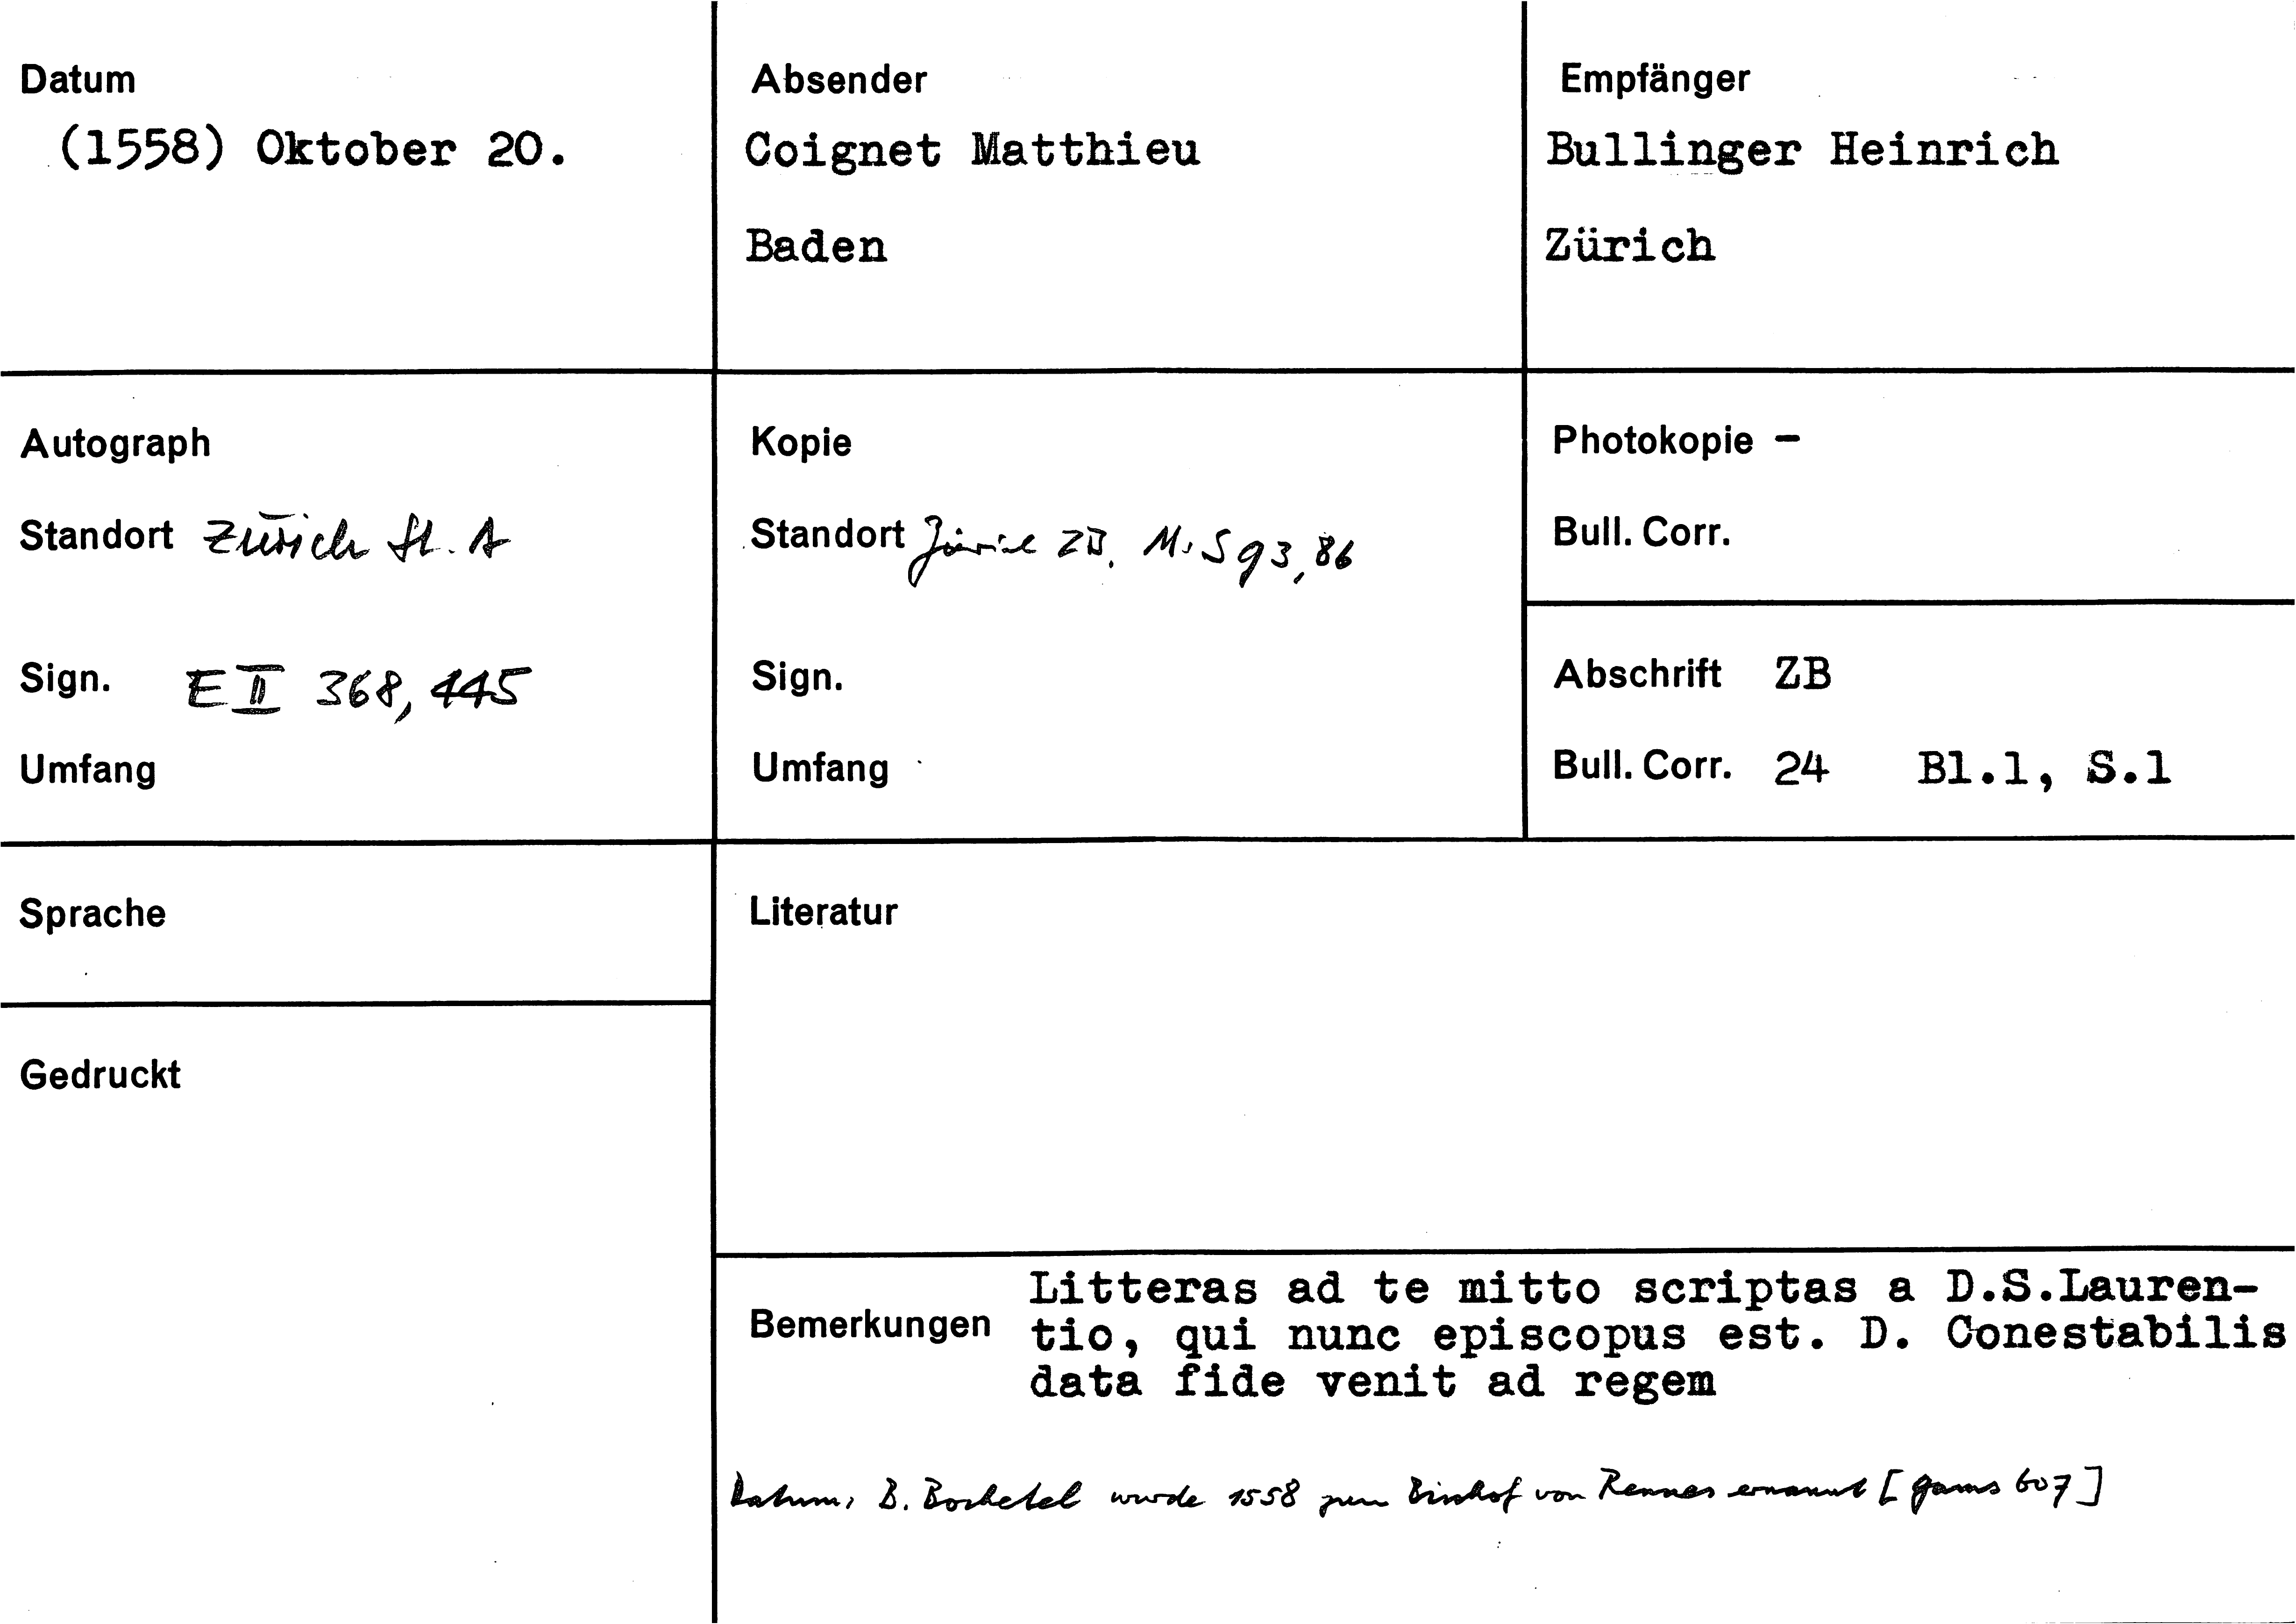 Datum
(1558) Oktober 20.
Absender
Coignet Matthieu
Baden
Empfänger
Bullinger Heinrich
Zürich
Autograph
Standort Zürich St. A
Sign. E II 368, 445
Umfang
Kopie
Standort Zürich ZB. Ms S 93, 86
Sign.
Umfang
Photokopie -
Bull. Corr.
Abschrift ZB
Bull. Corr. 24 Bl.1, S.1
Sprache
Gedruckt
Literatur
Bemerkungen
Litteras ad te mitto scriptas a D.S.Lauren-
tio, qui nunc episcopus est. D. Conestabilis
data fide venit ad regem
Datum: B. Bochetel wurde 1558 zum Bischof von Rennes ernannt [Gams 607]